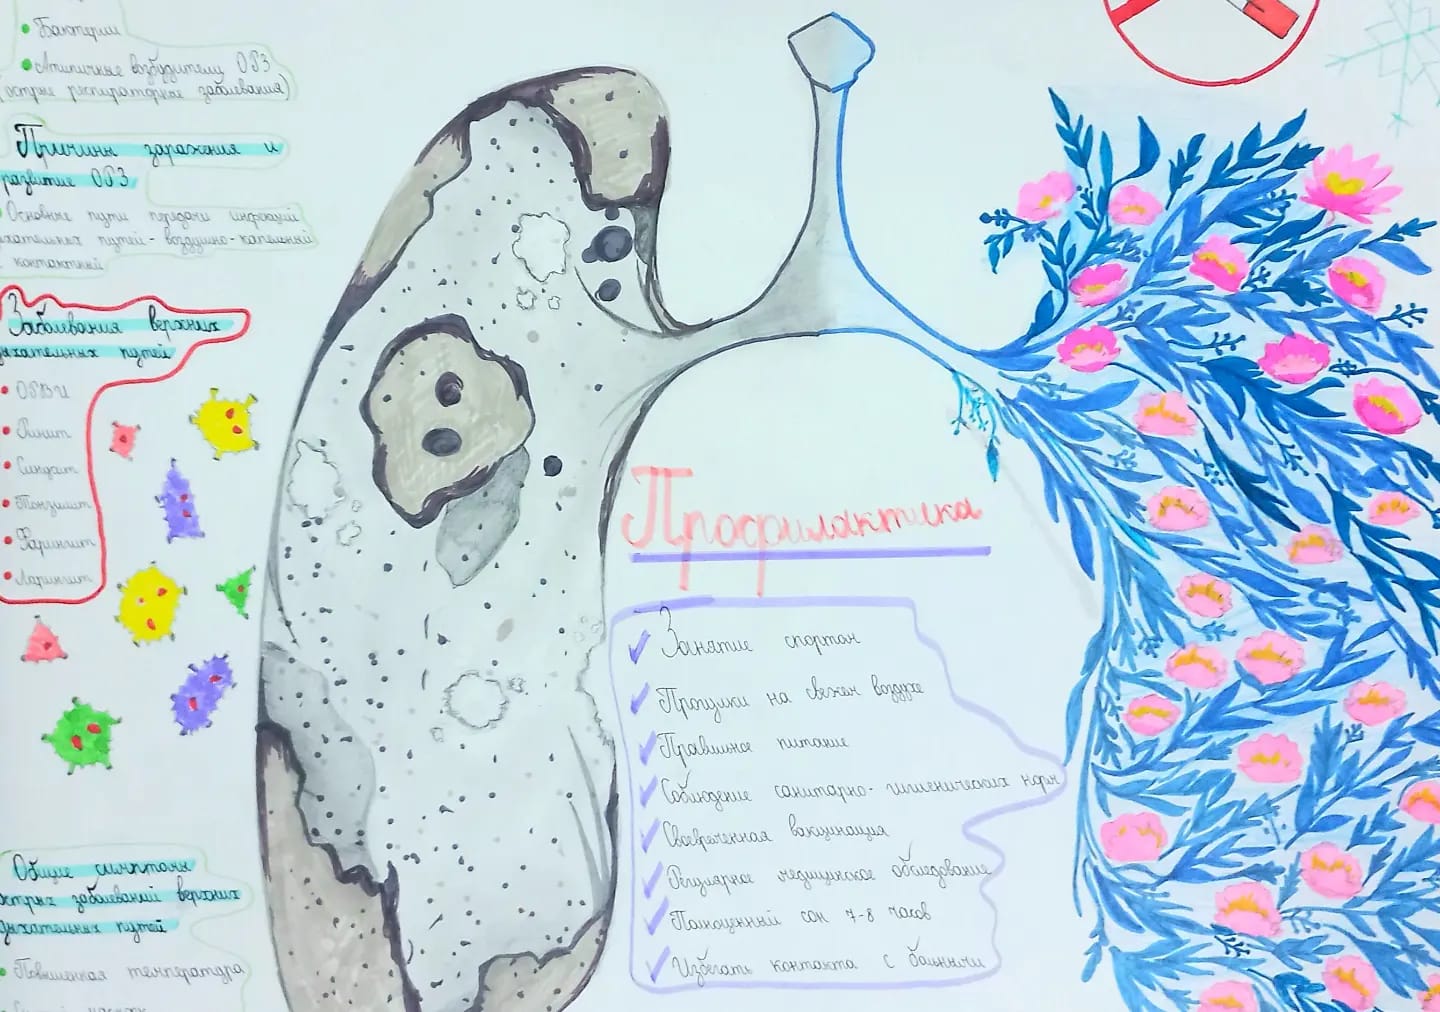 Бактерии
Атипичные возбудители ОРЗ
(острые респираторные заболевания)
Причины заражения и
развитие ОРЗ
Основные пути передачи инфекций
дыхательных путей - воздушно-капельный
контактный
Заболевания верхних
дыхательных путей
ОРВИ
Ринит
Синусит
Тонзиллит
Фарингит
Ларингит
Общие симптомы
острых заболеваний верхних
дыхательных путей
Повышенная температура
Профилактика
Занятие спортом
Прогулки на свежем воздухе
Правильное питание
Соблюдение санитарно-гигиенических норм
Своевременная вакцинация
Регулярное медицинское обследование
Полноценный сон 7-8 часов
Избегать контакта с больными